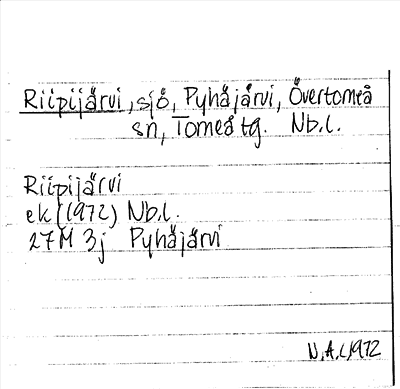 Riipijärvi, sjö, Pyhäjärvi, Övertorneå
sn, Torneå tg. Nb.l.
Riipijärvi
ek (1972) Nb.l.
27M 3j Pyhäjärvi
N.A. 1972